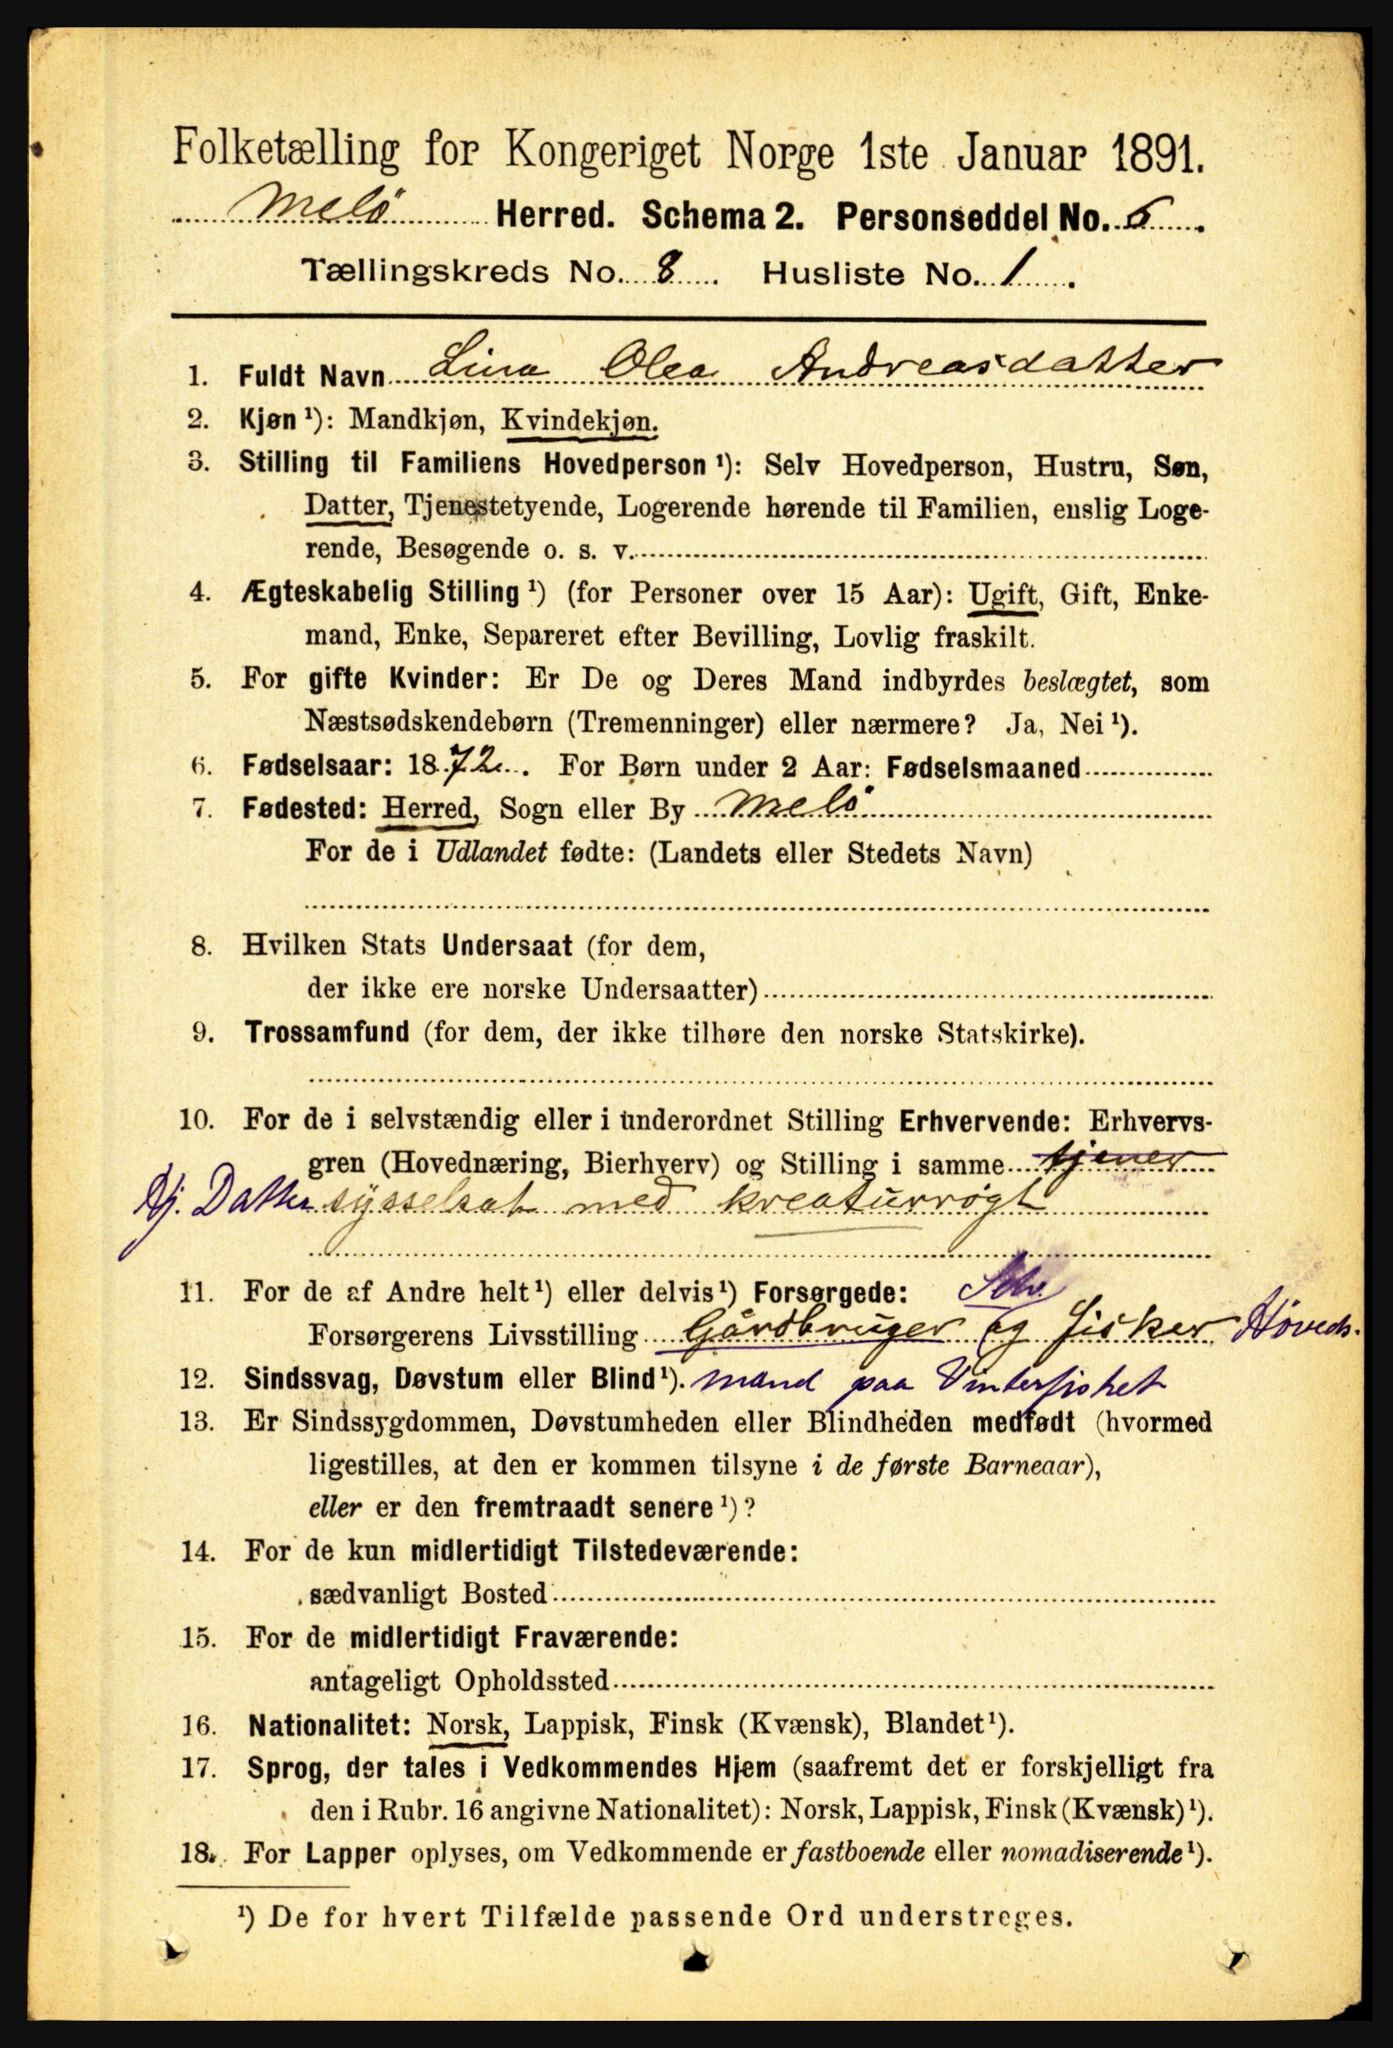 Folketælling for Kongeriget Norge 1ste Januar 1891.
Melö Herred. Schema 2. Personseddel No. 6.
Tællingskreds No. 8. Husliste No. 1.
1. Fuldt Navn Lina Olea Andreasdatter
2. Kjøn ¹): Mandkjøn, Kvindekjøn.
3. Stilling til Familiens Hovedperson ¹): Selv Hovedperson, Hustru, Søn,
Datter, Tjenestetyende, Logerende hørende til Familien, enslig Loge-
rende, Besøgende o. s. v.
4. Ægteskabelig Stilling ¹) (for Personer over 15 Aar): Ugift, Gift, Enke-
mand, Enke, Separeret efter Bevilling, Lovlig fraskilt.
5. For gifte Kvinder: Er De og Deres Mand indbyrdes beslægtet, som
Næstsødskendebørn (Tremenninger) eller nærmere? Ja, Nei ¹).
6. Fødselsaar: 1872. For Børn under 2 Aar: Fødselsmaaned
7. Fødested: Herred, Sogn eller By Melö
For de i Udlandet fødte: (Landets eller Stedets Navn)
8. Hvilken Stats Undersaat (for dem,
der ikke ere norske Undersaatter)
9. Trossamfund (for dem, der ikke tilhøre den norske Statskirke).
10. For de i selvstændig eller i underordnet Stilling Erhvervende: Erhvervs-
gren (Hovednæring, Bierhverv) og Stilling i samme tjener
Hj. Datter sysselsat med kreaturrøgt
11. For de af Andre helt ¹) eller delvis ¹) Forsørgede:
Forsørgerens Livsstilling Gårdbruger og fisker Höveds-
12. Sindssvag, Døvstum eller Blind ¹). mand paa Vinterfisket
13. Er Sindssygdommen, Døvstumheden eller Blindheden medfødt (hvormed
ligestilles, at den er kommen tilsyne i de første Barneaar),
eller er den fremtraadt senere ¹)?
14. For de kun midlertidigt Tilstedeværende:
sædvanligt Bosted
15. For de midlertidigt Fraværende:
antageligt Opholdssted
16. Nationalitet: Norsk, Lappisk, Finsk (Kvænsk), Blandet ¹).
17. Sprog, der tales i Vedkommendes Hjem (saafremt det er forskjelligt fra
den i Rubr. 16 angivne Nationalitet): Norsk, Lappisk, Finsk (Kvænsk) ¹).
18. For Lapper oplyses, om Vedkommende er fastboende eller nomadiserende ¹).
¹) De for hvert Tilfælde passende Ord understreges.